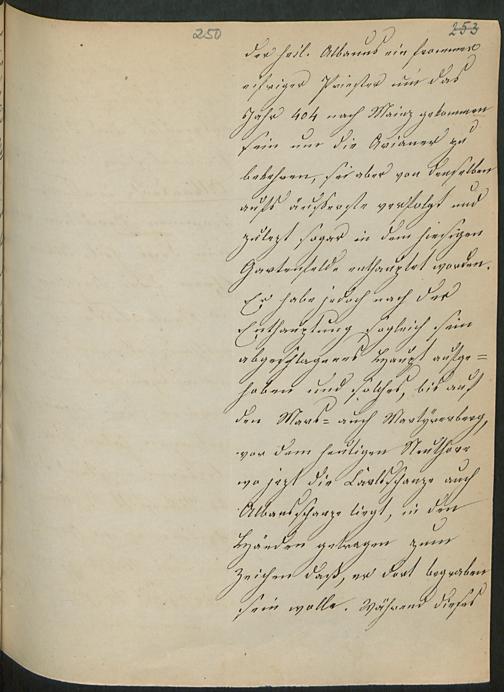 250
253
der heil. Albanus ein frommer
eifriger Priester um das
Jahr 404 nach Mainz gekommen
sein um die Arianer zu
bekehren, sei aber von denselben
aufs äusserste verfolgt und
zulezt sogar in dem hiesigen
Gartenfelde enthauptet worden.
Er habe jedoch nach der
Enthauptung sogleich sein
abgeschlagenes Haupt aufge=
hoben und solches, bis auf
den Mars= auch Martyrerberg,
vor dem heutigen Neuthore
wo jezt die Carlsschanze auch
Albansschanze liegt, in den
Händen getragen zum
Zeichen daß, er dort begraben
sein wolle. Während dieses